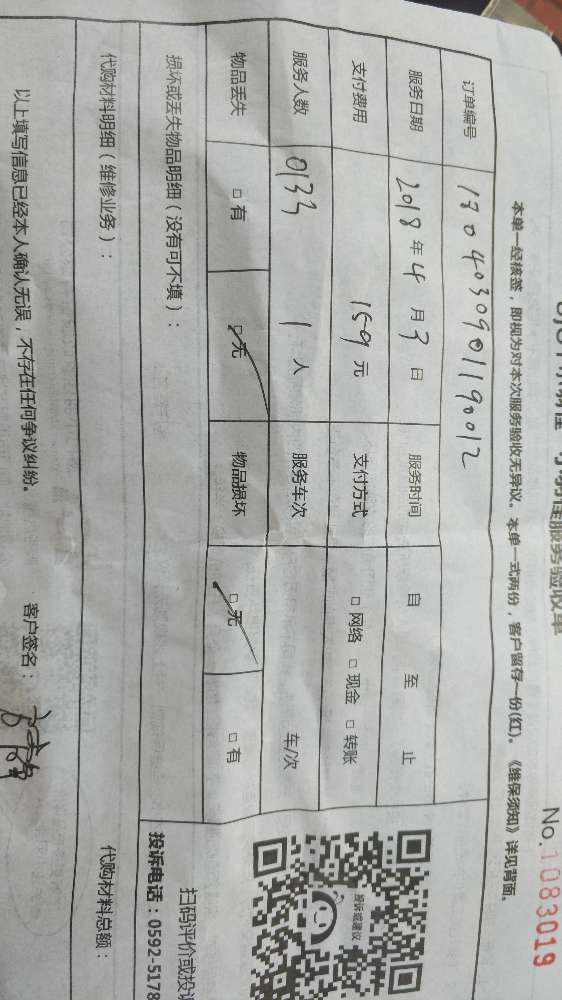 服务验收单
No.1083019
本单一经核签，即视为对本次服务验收无异议。本单一式两份，客户留存一份(红)。《维保须知》详见背面。
订单编号 1804030901190012
服务日期 2018年4月3日 服务时间 自 至 止
支付费用 159元 支付方式 □ 网络 □ 现金 □ 转账
服务人数 0133 1人 服务车次 车/次
物品丢失 □ 有 □ 无 物品损坏 □ 无 □ 有
投诉或建议
扫码评价或投
投诉电话：0592-5178
损坏或丢失物品明细（没有可不填）：
代购材料明细（维修业务）： 代购材料总额：
以上填写信息已经本人确认无误，不存在任何争议纠纷。 客户签名：